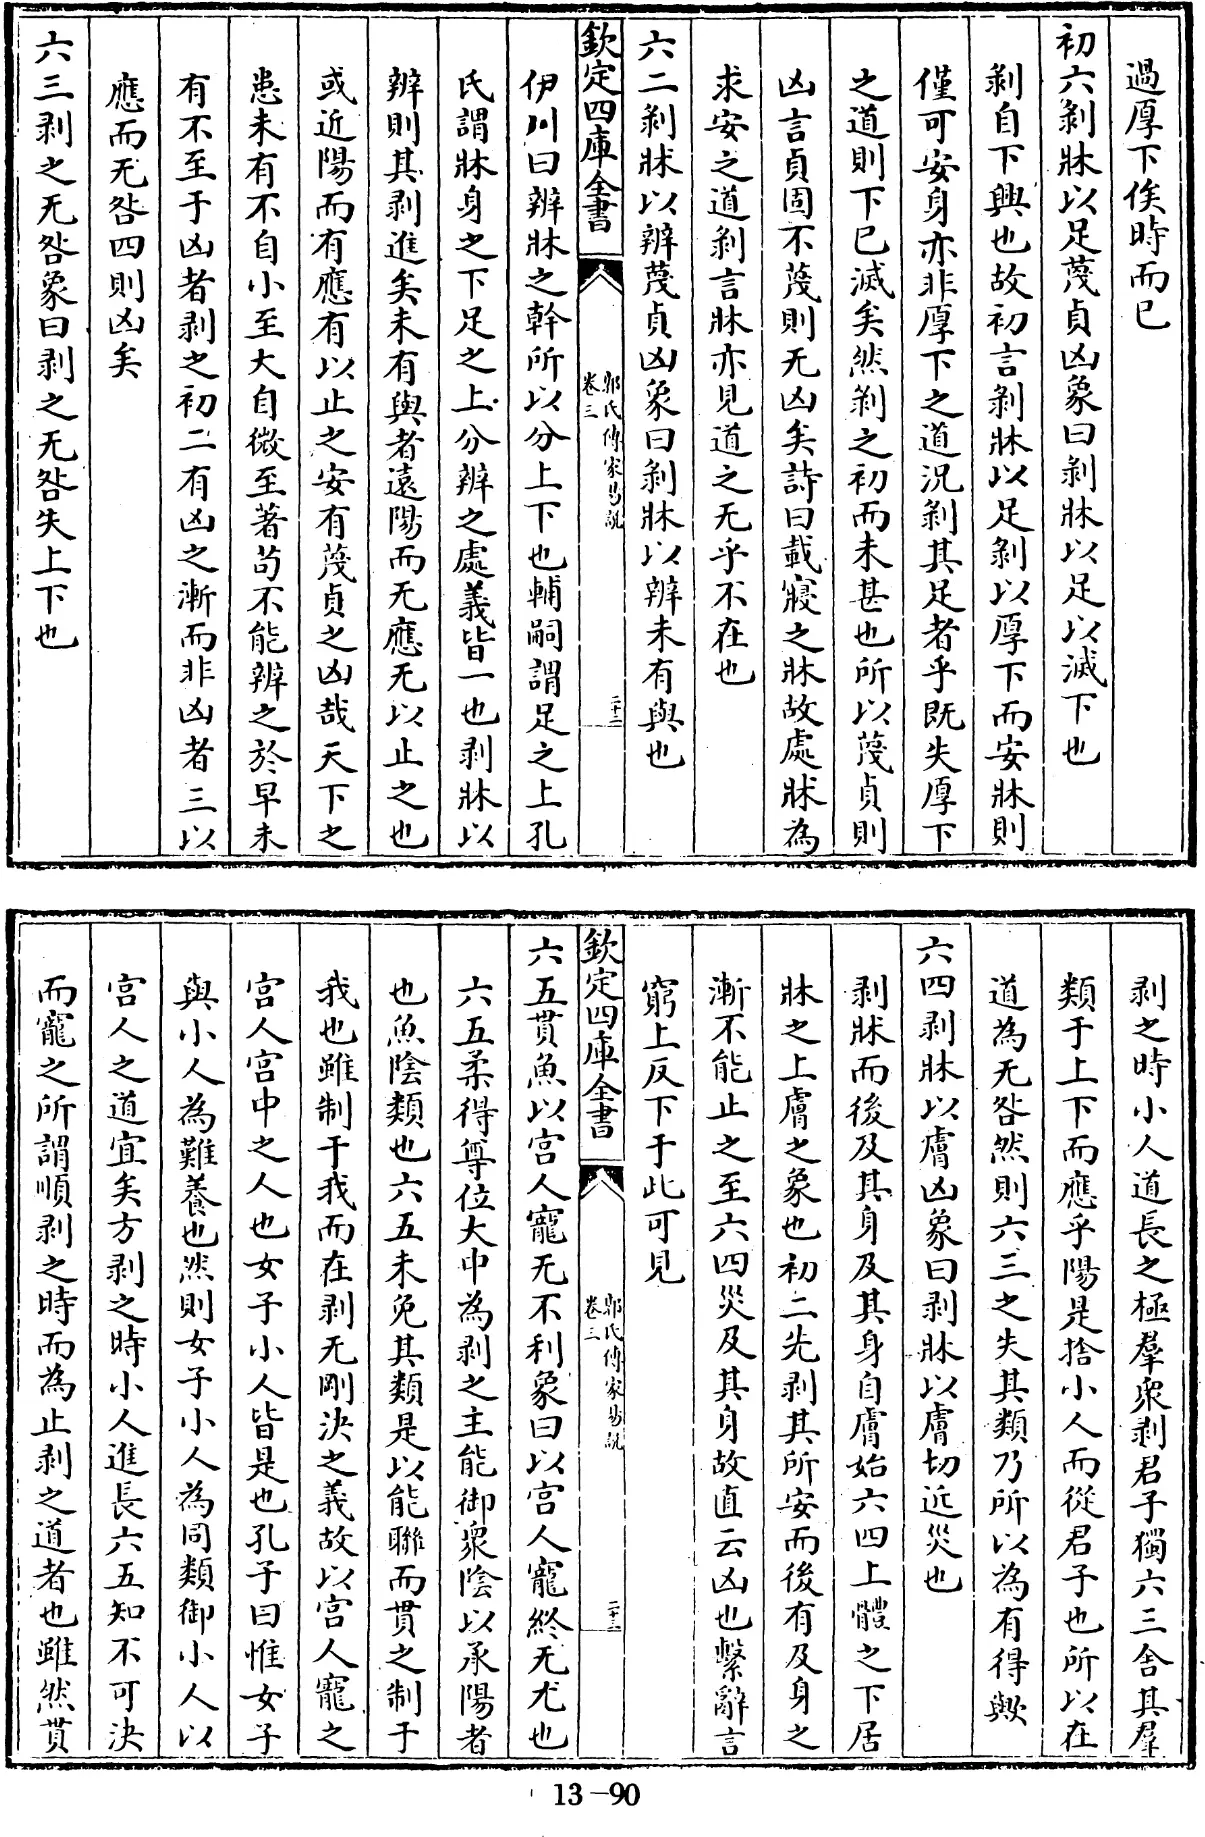 過厚下俟時而已
初六剝牀以足蔑貞凶象曰剝牀以足以滅下也
剝自下興也故初言剝牀以足剝以厚下而安牀則
僅可安身亦非厚下之道況剝其足者乎既失厚下
之道則下已滅矣然剝之初而未甚也所以蔑貞則
凶言貞固不蔑則无凶矣詩曰載寢之牀故處牀為
求安之道剝言牀亦見道之无乎不在也
六二剝牀以辨蔑貞凶象曰剝牀以辨未有與也
欽定四庫全書
郭氏傳家易説
卷三
二十二
伊川曰辨牀之幹所以分上下也輔嗣謂足之上孔
氏謂牀身之下足之上分辨之處義皆一也剝牀以
辨則其剝進矣未有與者遠陽而无應无以止之也
或近陽而有應有以止之安有蔑貞之凶哉天下之
患未有不自小至大自微至著茍不能辨之於早未
有不至于凶者剝之初二有凶之漸而非凶者三以
應而无咎四則凶矣
六三剝之无咎象曰剝之无咎失上下也
剝之時小人道長之極羣衆剝君子獨六三舍其羣
類于上下而應乎陽是捨小人而從君子也所以在
道為无咎然則六三之失其類乃所以為有得歟
六四剝牀以膚凶象曰剝牀以膚切近災也
剝牀而後及其身及其身自膚始六四上體之下居
牀之上膚之象也初二先剝其所安而後有及身之
漸不能止之至六四災及其身故直云凶也繫辭言
窮上反下于此可見
欽定四庫全書
郭氏傳家易説
卷三
二十三
六五貫魚以宮人寵无不利象曰以宮人寵終无尤也
六五柔得尊位大中為剝之主能御衆陰以承陽者
也魚陰類也六五未免其類是以能聯而貫之制于
我也雖制于我而在剝无剛決之義故以宮人寵之
宮人宮中之人也女子小人皆是也孔子曰惟女子
與小人為難養也然則女子小人為同類御小人以
宮人之道宜矣方剝之時小人進長六五知不可決
而寵之所謂順剝之時而為止剝之道者也雖然貫
13-90